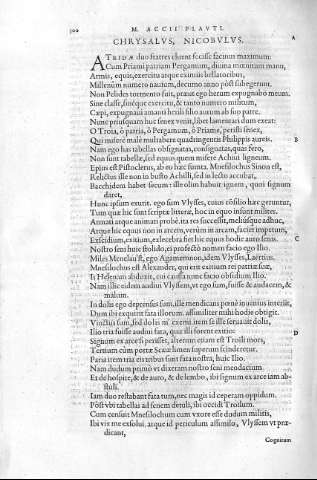 300 M. ACCII PLAVTI
A
CHRYSALVS, NICOBVLVS.
ATRIDAE duo fratres cluent fecisse facinus maximum:
Cum Priami patriam Pergamum, diuina moenitum manu,
Armis, equis, exercitu atque eximiis bellatoribus,
Millenum numero nauium, decumo anno post subegerunt.
Non Pelidis tormento fuit, praeut ego herum expugnabo meum,
Sine classe, sineque exercitu, & tanto numero militum,
Cepi, expugnaui amanti herili filio aurum ab suo patre.
Nunc priusquam huc senex venit, libet lamentari dum exeat:
O Troia, ô patria, ô Pergamum, ô Priame, periisti senex,
Qui misere male mulcabere quadringentis Philippis aureis. B
Nam ego has tabellas obsignatas, consignatas, quas fero,
Non sunt tabellae, sed equus quem misere Achiui ligneum.
Epius est Pistoclerus, ab eo hae sumtae. Mnesilochus Sinon est,
Relictus ille non in busto Achilli, sed in lecto accubat,
Bacchidem habet secum: ille olim habuit ignem, quoi signum
daret,
Hunc ipsum exurit. ego sum Vlysses, cuius consilio haec geruntur,
Tum quae hic sunt scriptae literae, hoc in equo insunt milites.
Armati atque animati probe. ita res successit, meliusque adhuc,
Atque hic equus non in arcem, verum in arcam, faciet impetum,
Exscidium, exitium, exlecebra fiet hic equus hodie auro senis. C
Nostro seni huic stolido, ei profecto nomen facio ego Ilio.
Miles Menelau'st, ego Agamemnon, idem Vlysses, Laertius.
Mnesilochus est Alexander, qui erit exitium rei patriae suae,
Is Helenam abduxit, cui causa nunc facio obsidium Ilio.
Nam illic eidem audiui Vlyssem, vt ego sum, fuisse & audacem, &
malum.
In dolis ego deprensus sum, ille mendicans pene inuentus interiit,
Dum ibi exquirit fata illorum. assimiliter mihi hodie obtigit.
Vinctus sum, sed dolis me exemi, item se ille seruauit dolis,
Ilio tria fuisse audiui fata, quae illi forent exitio: D
Signum ex arce si periisset, alterum etiam est Troili mors,
Tertium cùm portae Scaeae limen superum scinderetur.
Paria item tria eis tribus sunt fata nostra, huic Ilio.
Nam dudum primo vt dixeram nostro seni mendacium
Et de hospite, & de auro, & de lembo, ibi signum ex arce iam ab-
stuli.
Iam duo restabant fata tum, nec magis id ceperam oppidum.
Pòst vbi tabellas ad senem detuli, ibi occidi Troilum.
Cum censuit Mnesilochum cum vxore esse dudum militis,
Ibi vix me exsolui. atque id periculum assimilo, Vlyssem vt prae-
dicant,
Cognitum